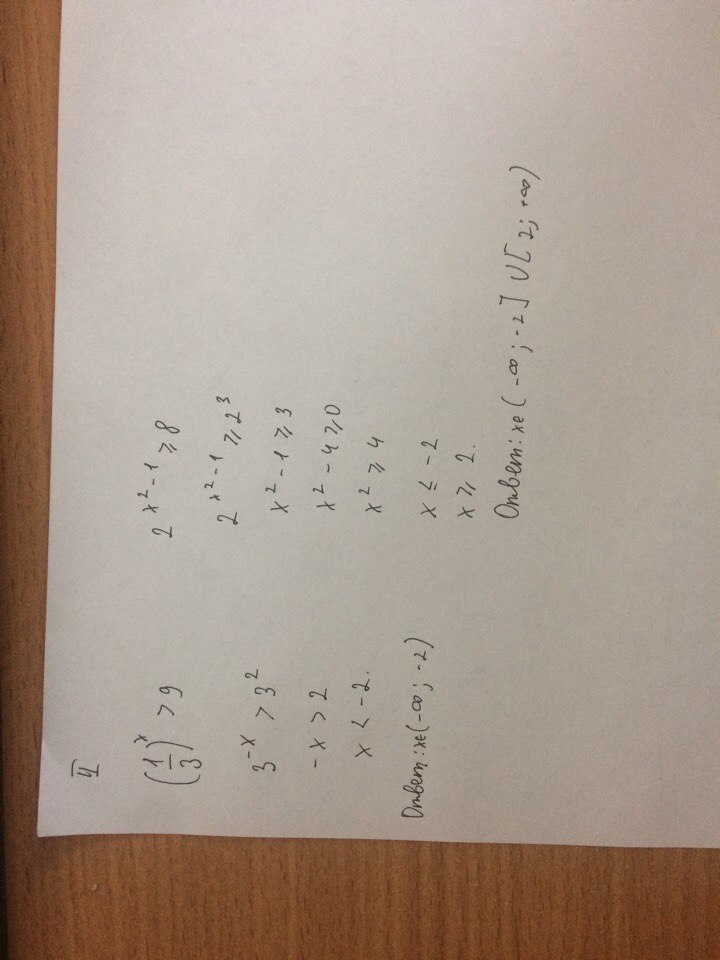 II
(1/3)^x > 9
3^-x > 3^2
-x > 2
x < -2.
Ответ: x∈(-∞; -2)
2^x^2-1 ⩾ 8
2^x^2-1 ⩾ 2^3
x^2-1 ⩾ 3
x^2-4 ⩾ 0
x^2 ⩾ 4
x ≤ -2
x ⩾ 2.
Ответ: x∈(-∞; -2]∪[2; +∞)